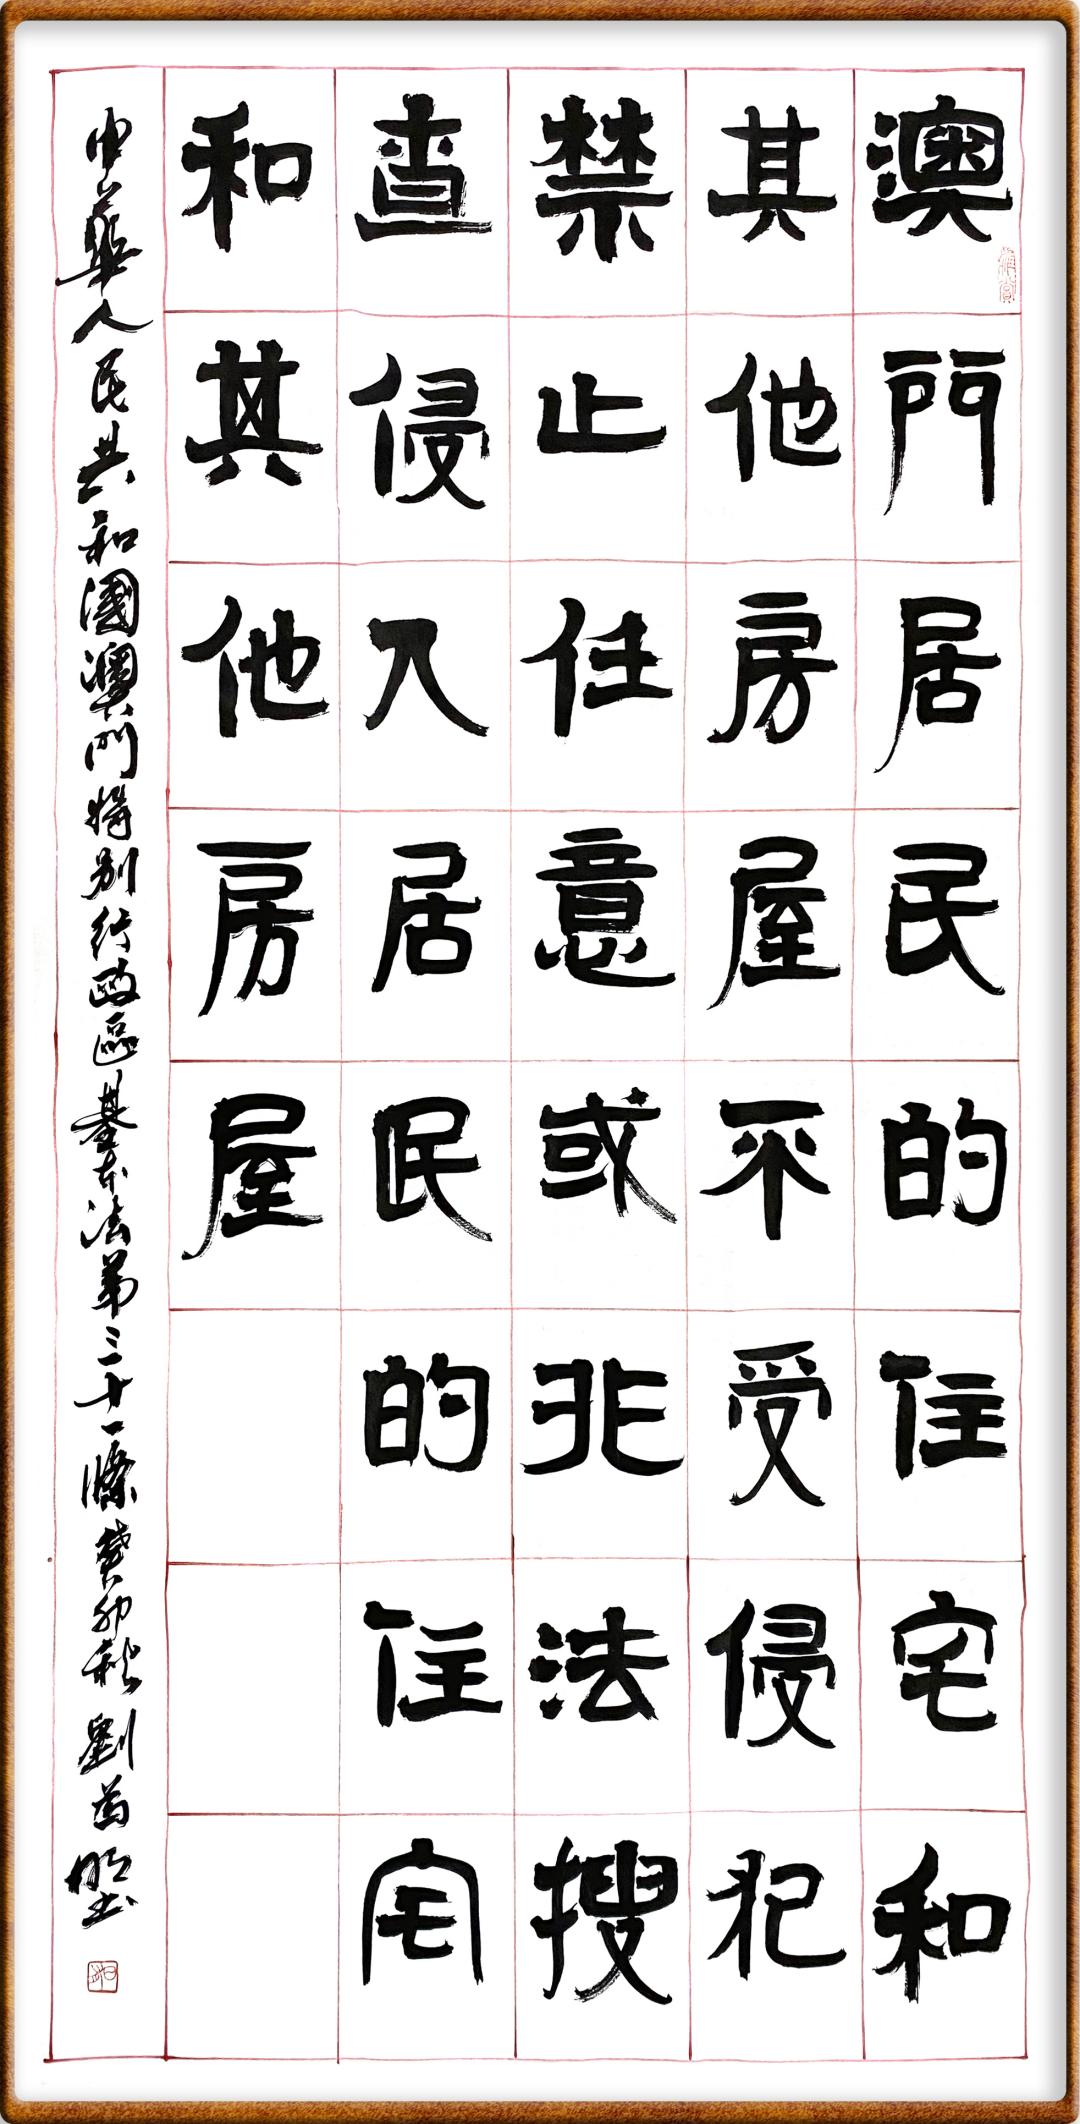 澳門居民的住宅和
其他房屋不受侵犯
禁止任意或非法搜
查侵入居民的住宅
和其他房屋
中華人民共和國澳門特別行政區基本法第三十一條 癸卯秋 劉為明書